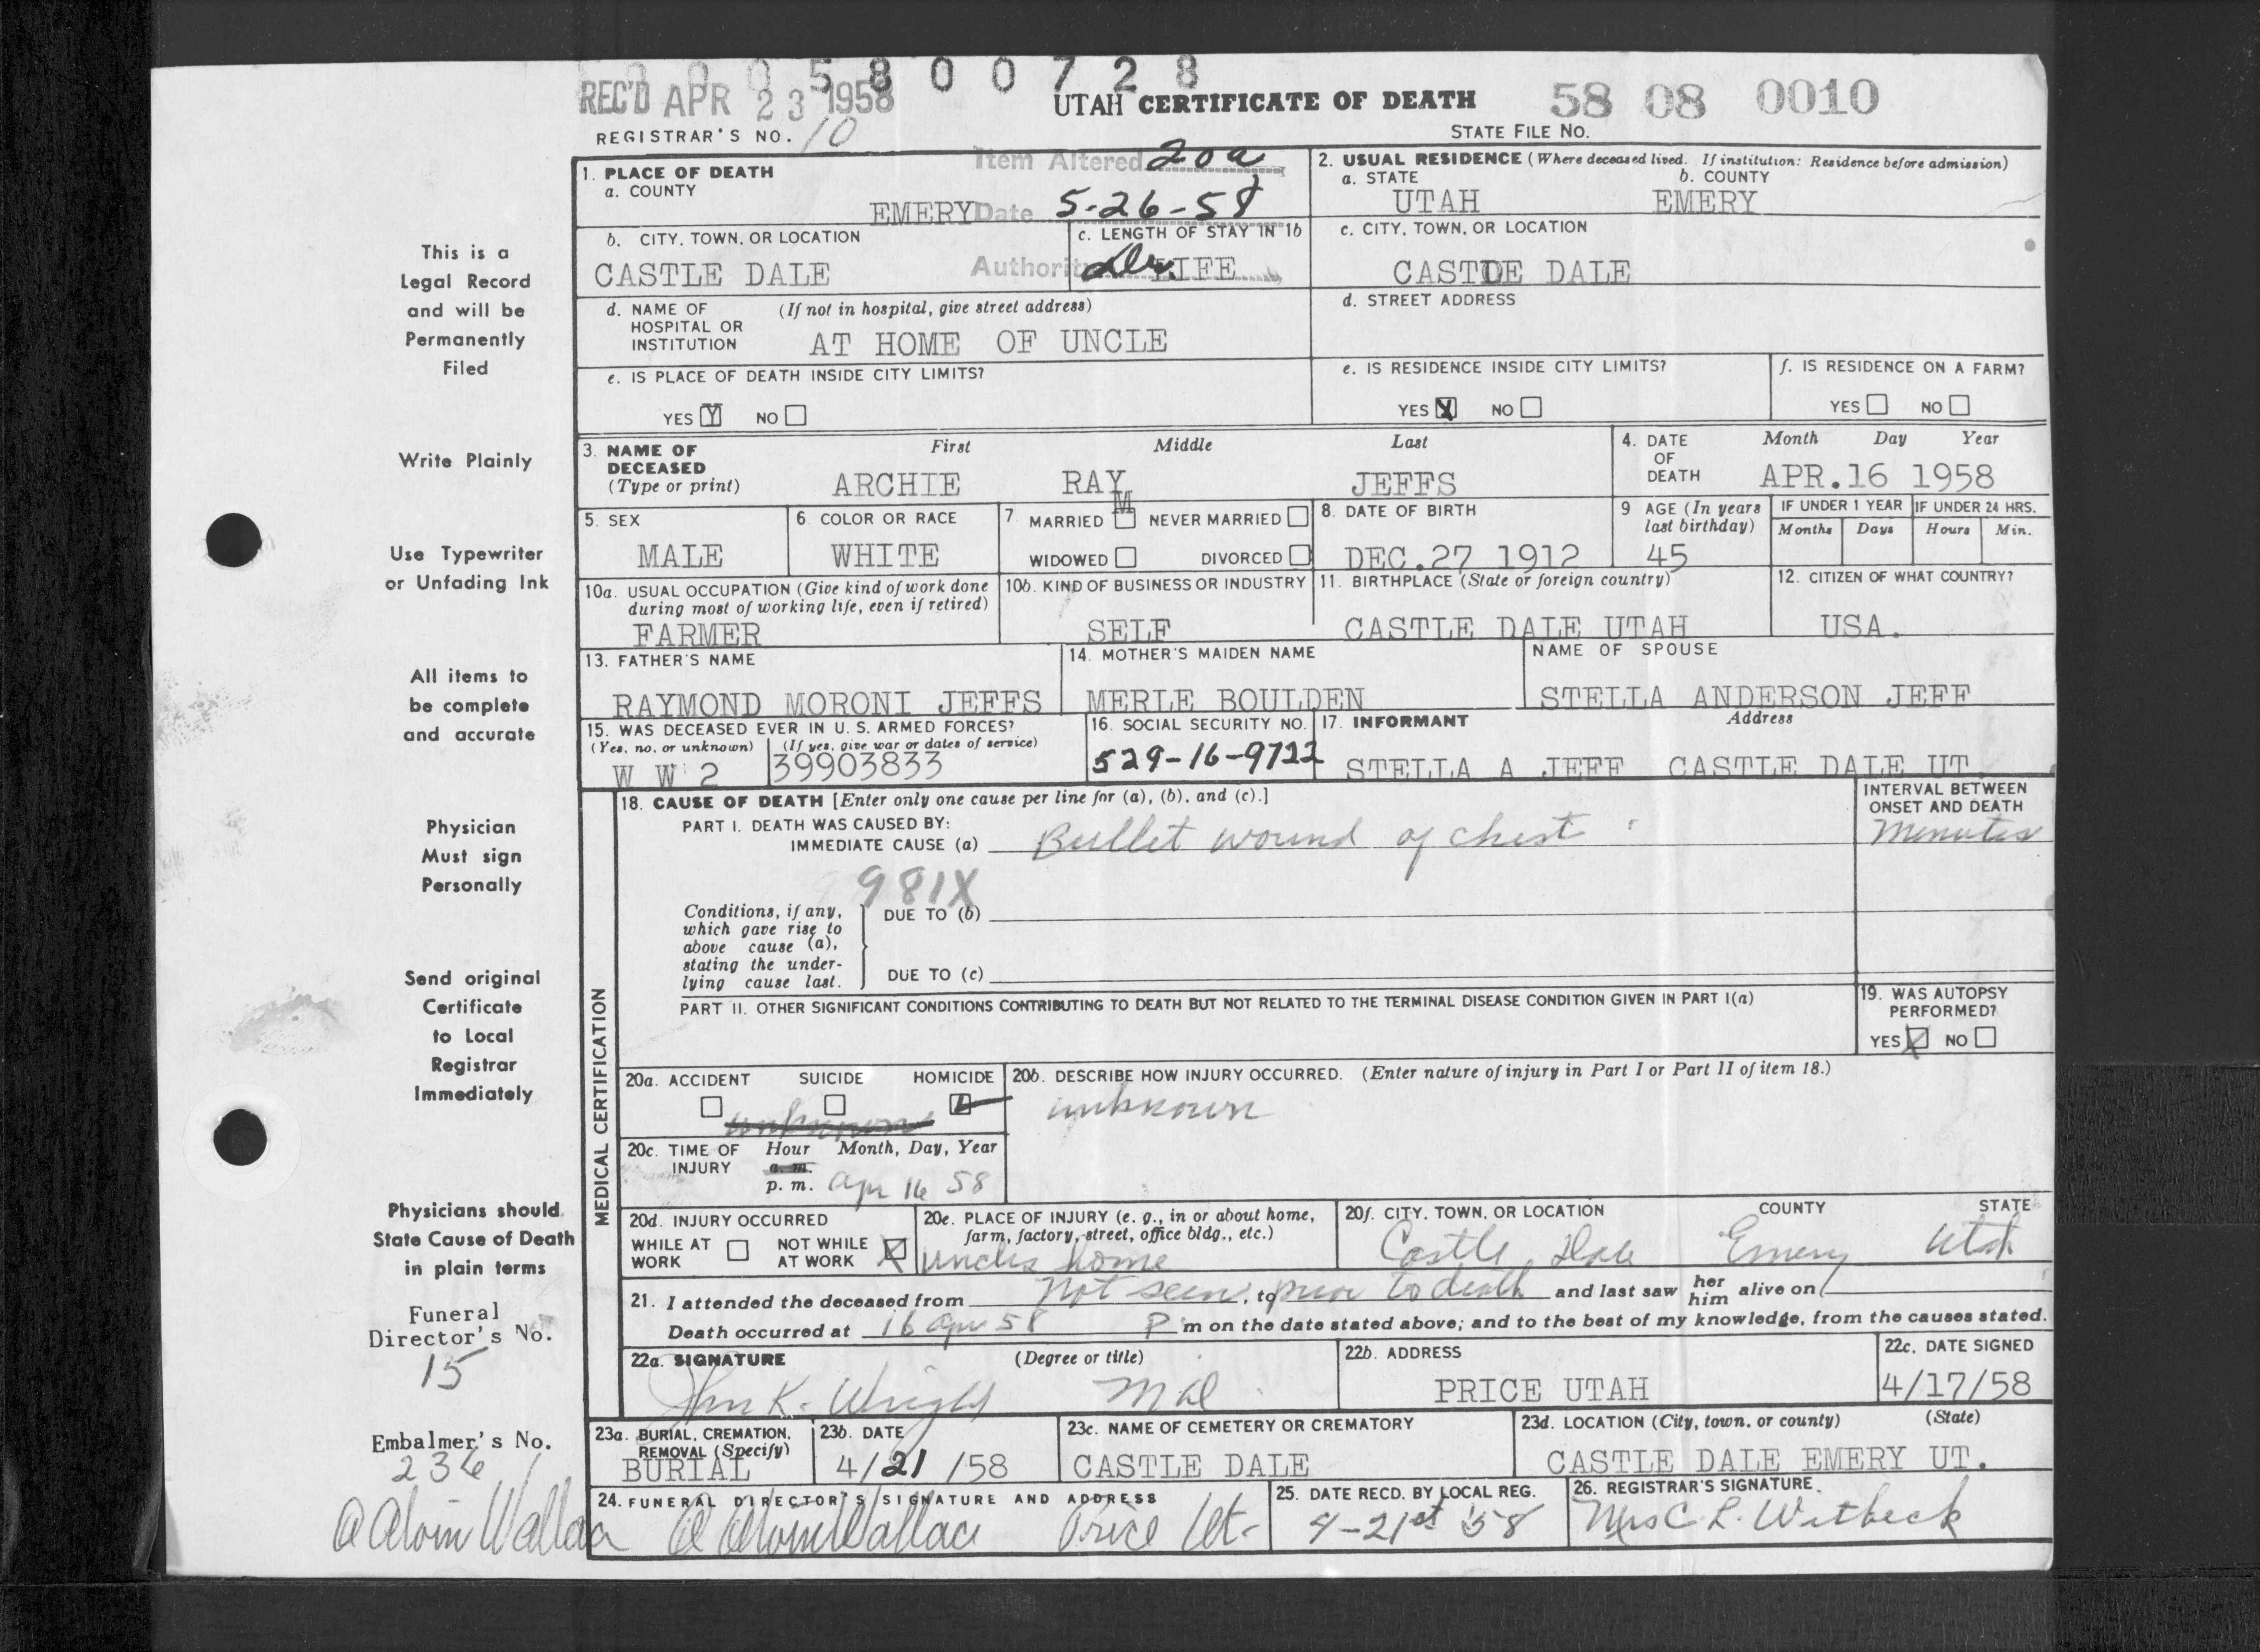 0 0 0 5 8 0 0 7 2 8
REC'D APR 23 1958
UTAH CERTIFICATE OF DEATH
58 08 0010
REGISTRAR'S NO. 10
STATE FILE NO.
Item Altered 20a
Date 5-26-58
Authority Dr.
1. PLACE OF DEATH
a. COUNTY
EMERY
2. USUAL RESIDENCE (Where deceased lived. If institution: Residence before admission)
a. STATE b. COUNTY
UTAH EMERY
b. CITY, TOWN, OR LOCATION
CASTLE DALE
c. LENGTH OF STAY IN 1b
LIFE
c. CITY, TOWN, OR LOCATION
CASTDE DALE
d. NAME OF HOSPITAL OR INSTITUTION (If not in hospital, give street address)
AT HOME OF UNCLE
d. STREET ADDRESS
e. IS PLACE OF DEATH INSIDE CITY LIMITS?
YES Y NO
e. IS RESIDENCE INSIDE CITY LIMITS?
YES X NO
f. IS RESIDENCE ON A FARM?
YES NO
3. NAME OF DECEASED (Type or print)
First Middle Last
ARCHIE RAY JEFFS
4. DATE OF DEATH Month Day Year
APR.16 1958
5. SEX
MALE
6. COLOR OR RACE
WHITE
7. MARRIED M NEVER MARRIED
WIDOWED DIVORCED
8. DATE OF BIRTH
DEC.27 1912
9 AGE (In years last birthday)
45
IF UNDER 1 YEAR IF UNDER 24 HRS.
Months Days Hours Min.
10a. USUAL OCCUPATION (Give kind of work done during most of working life, even if retired)
FARMER
10b. KIND OF BUSINESS OR INDUSTRY
SELF
11. BIRTHPLACE (State or foreign country)
CASTLE DALE UTAH
12. CITIZEN OF WHAT COUNTRY?
USA.
13. FATHER'S NAME
RAYMOND MORONI JEFFS
14. MOTHER'S MAIDEN NAME
MERLE BOULDEN
NAME OF SPOUSE
STELLA ANDERSON JEFF
15. WAS DECEASED EVER IN U. S. ARMED FORCES?
(Yes, no, or unknown) (If yes, give war or dates of service)
W W 2 39903833
16. SOCIAL SECURITY NO.
529-16-9722
17. INFORMANT Address
STELLA A JEFF CASTLE DALE UT
MEDICAL CERTIFICATION
18. CAUSE OF DEATH [Enter only one cause per line for (a), (b), and (c).]
INTERVAL BETWEEN ONSET AND DEATH
PART I. DEATH WAS CAUSED BY:
IMMEDIATE CAUSE (a) Bullet wound of chest
Minutes
981X
Conditions, if any, which gave rise to above cause (a), stating the underlying cause last.
DUE TO (b)
DUE TO (c)
PART II. OTHER SIGNIFICANT CONDITIONS CONTRIBUTING TO DEATH BUT NOT RELATED TO THE TERMINAL DISEASE CONDITION GIVEN IN PART I(a)
19. WAS AUTOPSY PERFORMED?
YES X NO
20a. ACCIDENT SUICIDE HOMICIDE
unknown
20b. DESCRIBE HOW INJURY OCCURRED. (Enter nature of injury in Part I or Part II of item 18.)
unknown
20c. TIME OF INJURY Hour Month, Day, Year
a. m.
p. m. Apr 16 58
20d. INJURY OCCURRED
WHILE AT WORK NOT WHILE AT WORK X
20e. PLACE OF INJURY (e. g., in or about home, farm, factory, street, office bldg., etc.)
Uncles home
20f. CITY, TOWN, OR LOCATION COUNTY STATE
Castle Dale Emery Utah
21. I attended the deceased from Not seen, to prior to death and last saw her him alive on
Death occurred at 16 Apr 58 P m on the date stated above; and to the best of my knowledge, from the causes stated.
22a. SIGNATURE (Degree or title)
John K. Wright MD
22b. ADDRESS
PRICE UTAH
22c. DATE SIGNED
4/17/58
23a. BURIAL, CREMATION, REMOVAL (Specify)
BURIAL
23b. DATE
4/21/58
23c. NAME OF CEMETERY OR CREMATORY
CASTLE DALE
23d. LOCATION (City, town, or county) (State)
CASTLE DALE EMERY UT.
24. FUNERAL DIRECTOR'S SIGNATURE AND ADDRESS
A Alvin Wallace Price Ut-
25. DATE RECD. BY LOCAL REG.
4-21st '58
26. REGISTRAR'S SIGNATURE
Mrs C. L. Witbeck
This is a
Legal Record
and will be
Permanently
Filed
Write Plainly
Use Typewriter
or Unfading Ink
All items to
be complete
and accurate
Physician
Must sign
Personally
Send original
Certificate
to Local
Registrar
Immediately
Physicians should
State Cause of Death
in plain terms
Funeral
Director's No.
15
Embalmer's No.
236
A Alvin Wallace